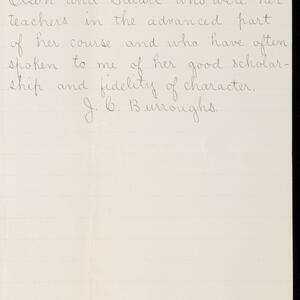 and who were her
teachers in the advanced part
of her course and who have often
spoken to me of her good scholar-
ship and fidelity of character.
J. C. Burroughs.